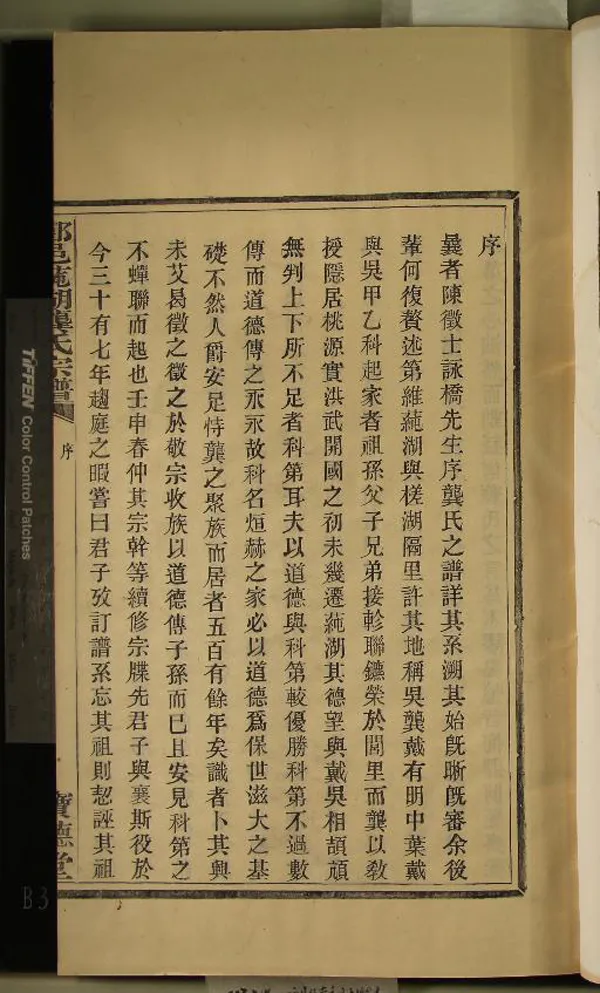 序
曩者陳徵士詠橋先生序龔氏之譜詳其系溯其始旣晰旣審余後
輩何復贅述第維蒓湖與槎湖隔里許其地稱吳龔戴有明中葉戴
與吳甲乙科起家者祖孫父子兄弟接軫聯鑣榮於閭里而龔以敎
授隱居桃源實洪武開國之初未幾遷蒓湖其德望與戴吳相頡頏
無判上下所不足者科第耳夫以道德與科第較優勝科第不過數
傳而道德傳之永永故科名烜赫之家必以道德爲保世滋大之基
礎不然人爵安足恃龔之聚族而居者五百有餘年矣識者卜其興
未艾曷徵之徵之於敬宗收族以道德傳子孫而已且安見科第之
不蟬聯而起也壬申春仲其宗幹等續修宗牒先君子與襄斯役於
今三十有七年趨庭之暇嘗曰君子攷訂譜系忘其祖則恝誣其祖
邑蒓湖龔氏宗譜
序
寶德堂
TIFFEN Color Control Patches
B3